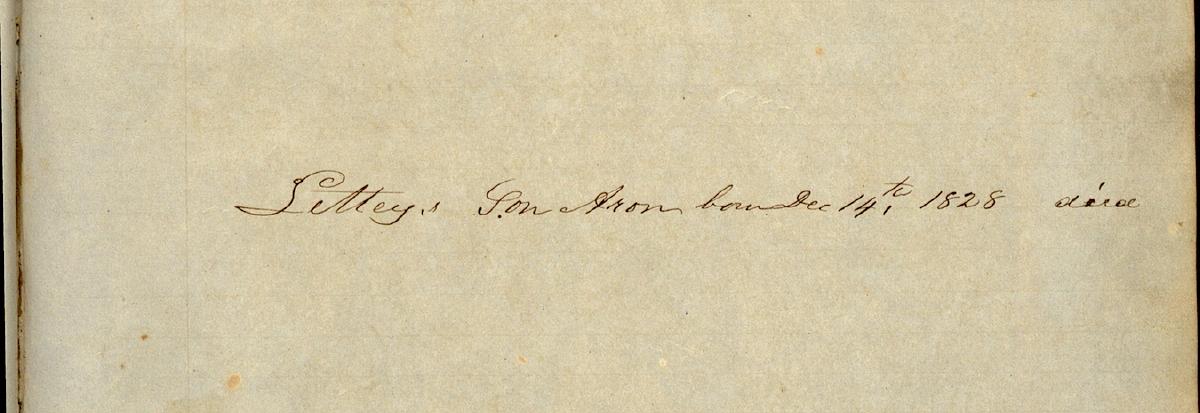 Lettey,s Son Aron born Dec 14th, 1828 died